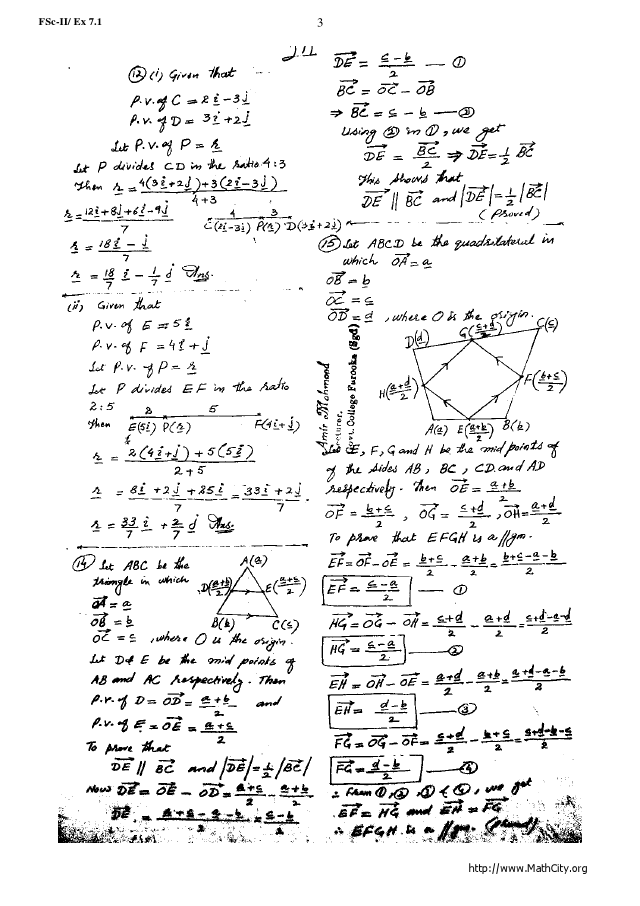 FSc-II/ Ex 7.1
3
⑫ (i) Given that
P.v. of C = 2i - 3j
P.v. of D = 3i + 2j
Let P.v. of P = r
Let P divides CD in the ratio 4:3
Then r = (4(3i+2j)+3(2i-3j))/(4+3)
r = (12i+8j+6i-9j)/7
4 3
C(2i-3j) P(r) D(3i+2j)
r = (18i - j)/7
r = 18/7 i - 1/7 j Ans.
(ii) Given that
P.v. of E = 5i
P.v. of F = 4i + j
Let P.v. of P = r
Let P divides EF in the ratio
2:5
2 5
Then E(5i) P(r) F(4i+j)
r = (2(4i+j) + 5(5i))/(2+5)
r = (8i + 2j + 25i)/7 = (33i + 2j)/7
r = 33/7 i + 2/7 j Ans.
⑭ Let ABC be the
triangle in which
OA = a
OB = b
OC = c, where O is the origin.
A(a)
D((a+b)/2) E((a+c)/2)
B(b) C(c)
Let D & E be the mid points of
AB and AC respectively. Then
P.v. of D = OD = (a+b)/2 and
P.v. of E = OE = (a+c)/2
To prove that
DE || BC and |DE| = 1/2 |BC|
Now DE = OE - OD = (a+c)/2 - (a+b)/2
DE = (a+c-a-b)/2 = (c-b)/2
DE = (c-b)/2 — ①
BC = OC - OB
⇒ BC = c - b — ②
Using ② in ①, we get
DE = BC/2 ⇒ DE = 1/2 BC
This shows that
DE || BC and |DE| = 1/2 |BC|
(Proved)
⑮ Let ABCD be the quadrilateral in
which OA = a
OB = b
OC = c
OD = d, where O is the origin.
D(d) G((c+d)/2) C(c)
H((a+d)/2) F((b+c)/2)
A(a) E((a+b)/2) B(b)
Amir Mahmood
Lecturer,
Govt. College Farooka (Sgd)
Let E, F, G and H be the mid points of
of the sides AB, BC, CD and AD
respectively. Then OE = (a+b)/2
OF = (b+c)/2, OG = (c+d)/2, OH = (a+d)/2
To prove that EFGH is a //gm.
EF = OF - OE = (b+c)/2 - (a+b)/2 = (b+c-a-b)/2
EF = (c-a)/2 — ①
HG = OG - OH = (c+d)/2 - (a+d)/2 = (c+d-a-d)/2
HG = (c-a)/2 — ②
EH = OH - OE = (a+d)/2 - (a+b)/2 = (a+d-a-b)/2
EH = (d-b)/2 — ③
FG = OG - OF = (c+d)/2 - (b+c)/2 = (c+d-b-c)/2
FG = (d-b)/2 — ④
∴ From ①, ②, ③ & ④, we get
EF = HG and EH = FG
∴ EFGH is a //gm. (Proved)
http://www.MathCity.org